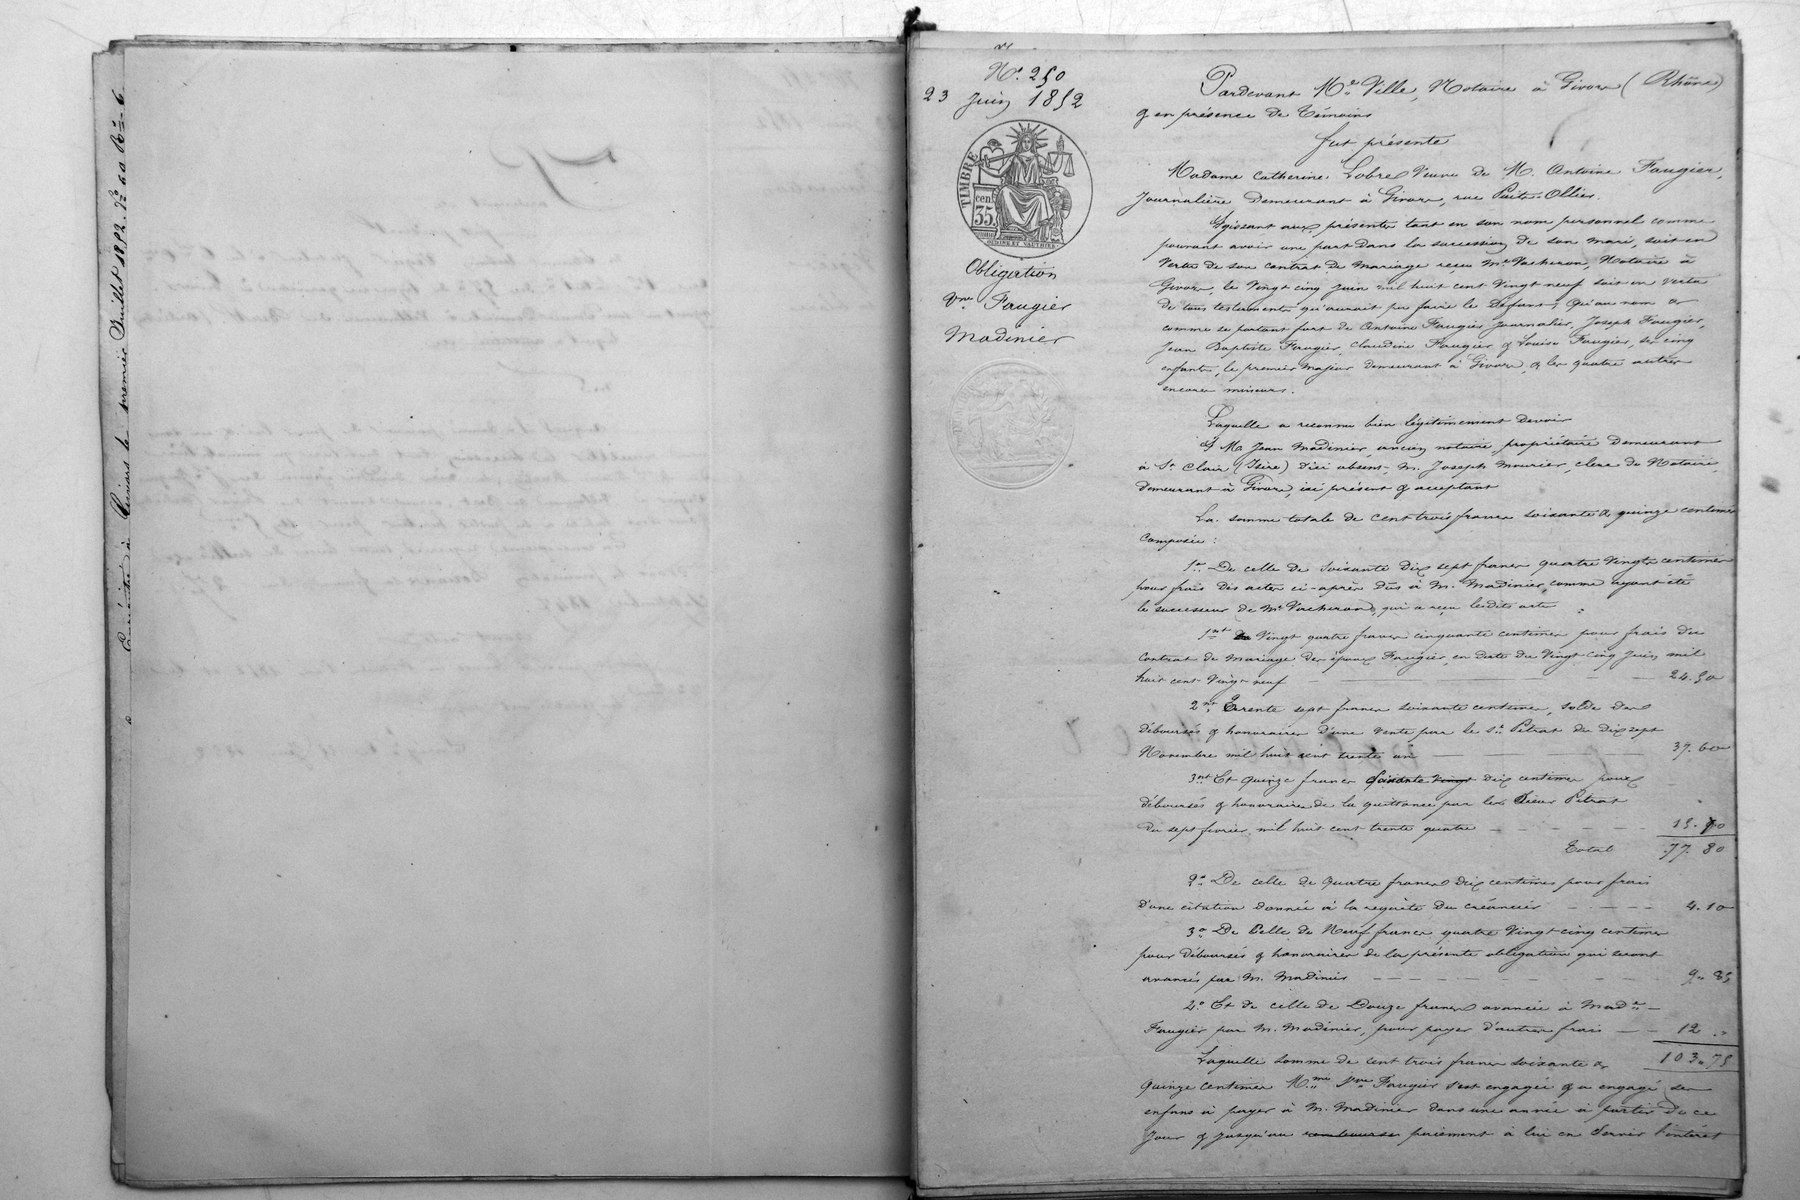 Enrégistré à Givors le premier Juillet 1852. fo
No. 250
23 Juin 1852
TIMBRE
cen. 35
OUDINE ET VAUTHIER
Obligation
Vve Faugier
Madinier
Pardevant Me. Ville, Notaire à Givors (Rhône)
& en présence de Témoins
fut présente
Madame Catherine Lobre Veuve de M. Antoine Faugier,
Journalière Demeurant à Givors, rue Puits-Ollier.
Agissant aux présentes tant en son nom personnel comme
pouvant avoir une part dans la succession de son mari, soit en
vertu de son contrat de mariage reçu Me Vacheron, Notaire à
Givors, le Vingt cinq Juin mil huit cent Vingt neuf soit en vertu
de tous testaments qu'aurait pu faire le Défunt, Qu'au nom &
comme se portant fort de Antoine Faugier Journalier, Joseph Faugier,
Jean Baptiste Faugier, Claudine Faugier & Louise Faugier, ses cinq
enfants, le premier majeur demeurant à Givors, & les quatre autres
encore mineurs.
Laquelle a reconnu bien légitimement devoir
A M. Jean Madinier, ancien notaire, propriétaire demeurant
à St. Clair (Isère) d'ici absent M. Joseph Mourier, clerc de Notaire,
demeurant à Givors, ici présent & acceptant
La somme totale de cent trois francs soixante & quinze centimes
Composée :
1o. De celle de Soixante Dix sept francs quatre Vingts centimes
pour frais des actes ci-après dûs à M. Madinier, comme ayant été
le successeur de Me Vacheron, qui a reçu lesdits actes :
1nt Vingt quatre francs cinquante centimes pour frais du
Contrat de Mariage des époux Faugier, en date du Vingt cinq Juin mil
huit cent Vingt neuf 24.50
2nt. Trente sept francs soixante centimes, solde des
déboursés & honoraires d'une vente par le Sr. Pitrat du Dix sept
Novembre mil huit cent trente un 37.60
3nt Et Quinze francs soixante vingt dix centimes pour
déboursés & honoraires de la quittance par les Sieur Pitrat
du sept février mil huit cent trente quatre 15.70
Total 77.80
2o. De celle de Quatre francs dix centimes pour frais
d'une citation donnée à la requête du créancier 4.10
3o. De Celle de Neuf francs quatre Vingt-cinq centimes
pour déboursés & honoraires de la présente obligation qui seront
avancés par M. Madinier 9.85
4o. Et de celle de Douze francs avancée à Made
Faugier par M. Madinier, pour payer d'autres frais 12 "
103.75
Laquelle somme de cent trois francs soixante &
Quinze centimes Mme Vve Faugier s'est engagée & a engagé ses
enfans à payer à M. Madinier dans une année à partir de ce
Jour & jusqu'au rembourse paiement à lui en servir l'intérêt